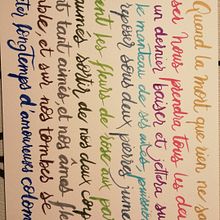 Quand la mort que rien ne s
ser Nous prendra tous les deu
un dernier baiser et jetera su
le manteau de ses ailes puissan
poser sous deux pierres jume
ent les fleurs de rose aux par
aumés sortir de nos deux corp
t tant aimés, et nos âmes fle
mble, et sur nos tombes se
ter longtemps d'amoureux colom